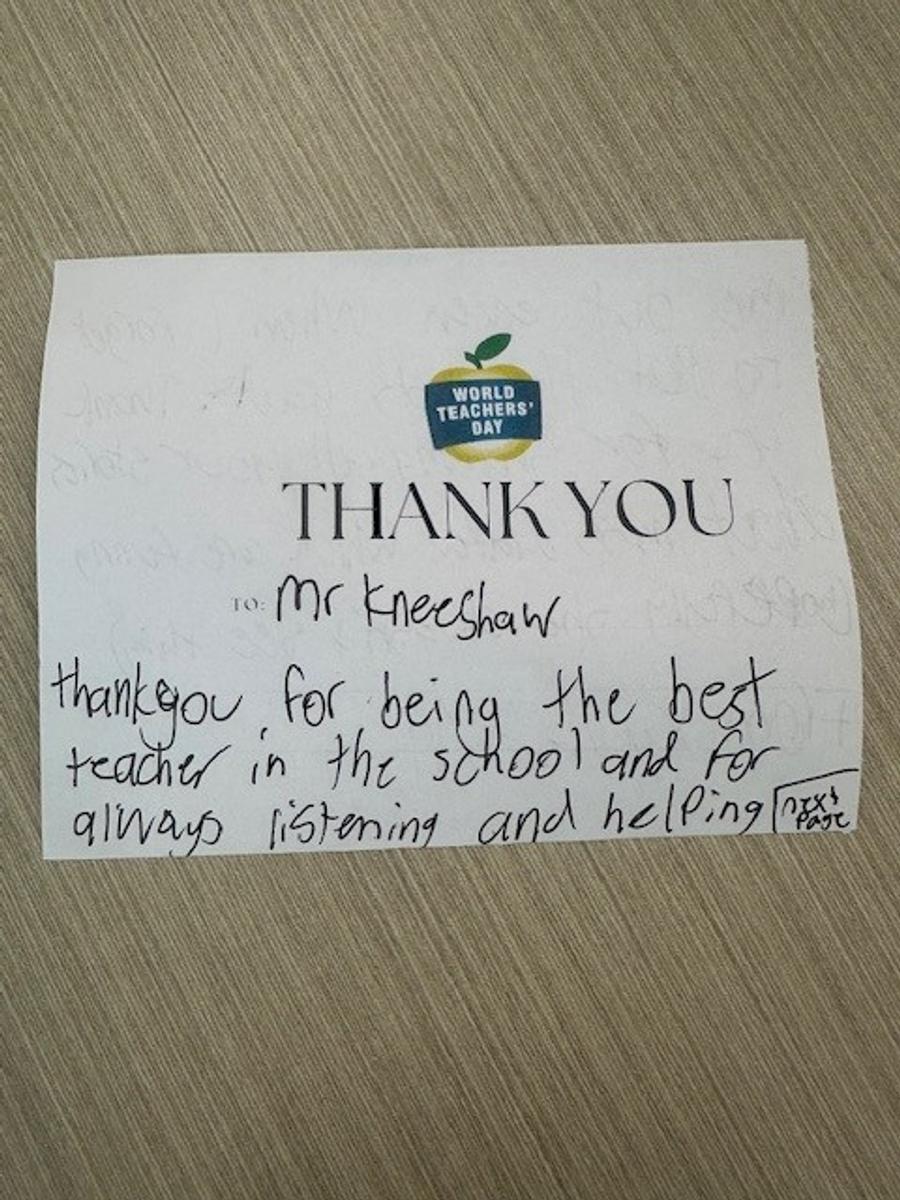 WORLD
TEACHERS'
DAY
THANK YOU
TO: Mr Kneeshaw
thankyou for being the best
teacher in the school and for
always listening and helping
next
Page